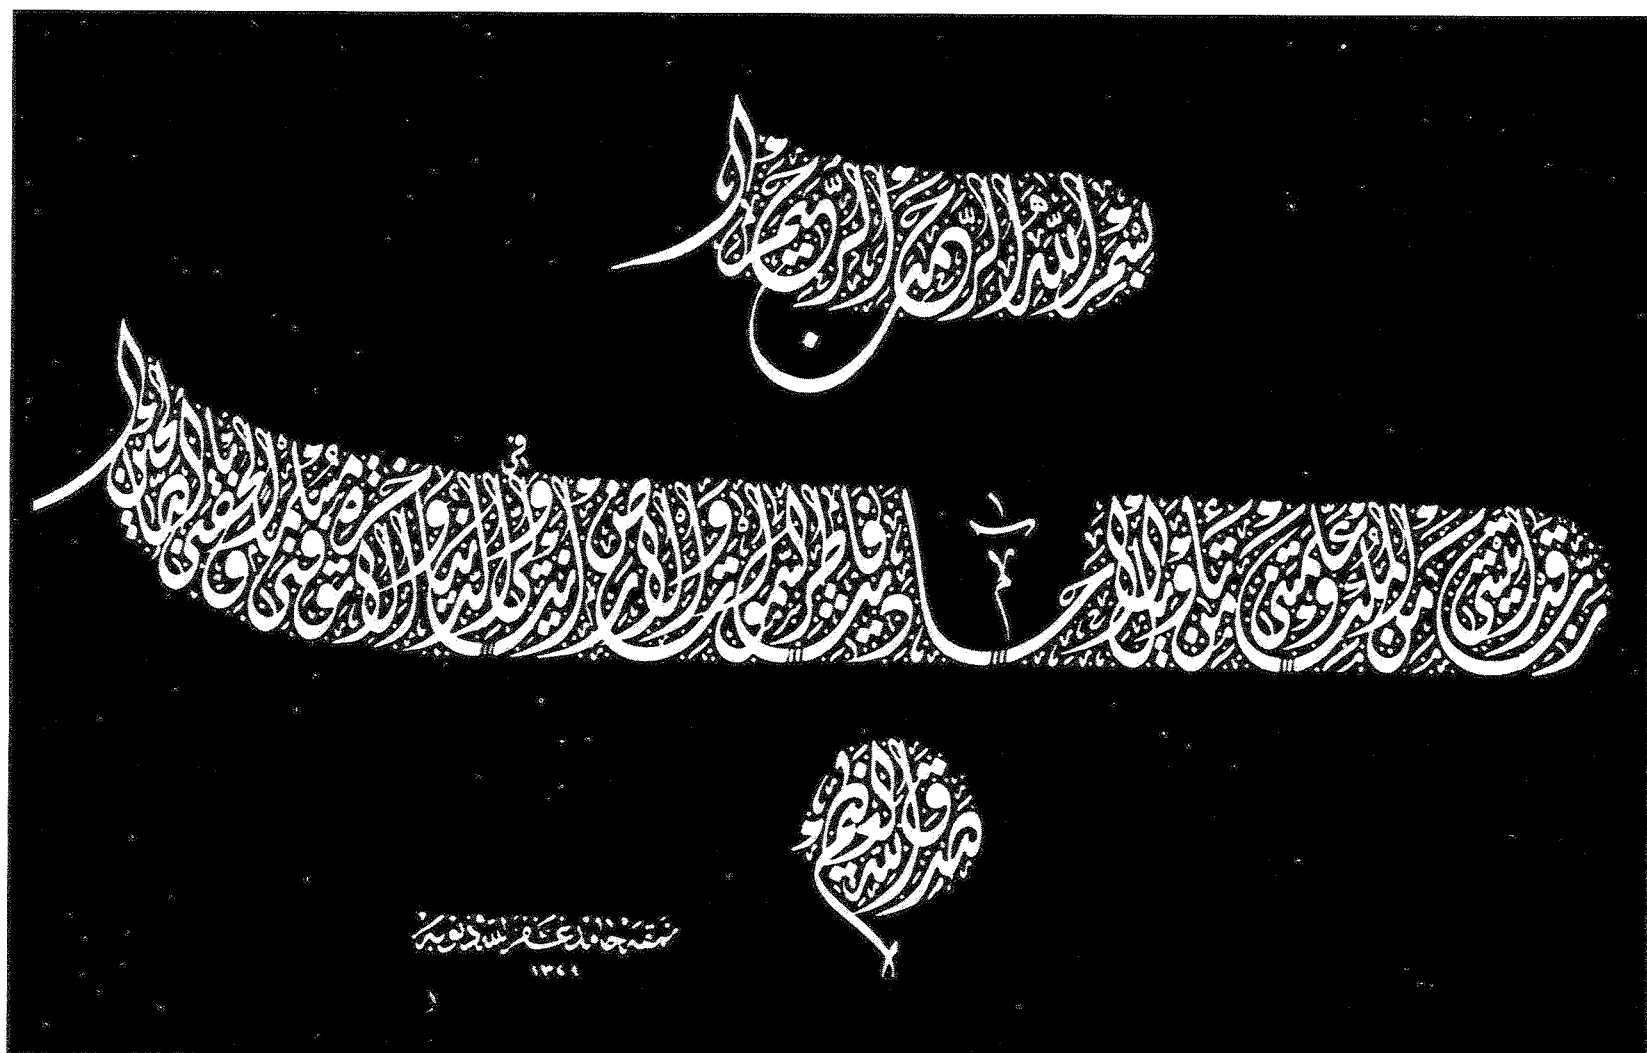 بسم الله الرحمن الرحيم
رب قد اتيتني من الملك وعلمتني من تأويل الاحاديث فاطر السموات والارض انت وليي في الدنيا والاخرة توفني مسلما والحقني بالصالحين
صدق الله العظيم
نمقه حامد غفر الله ذنوبه